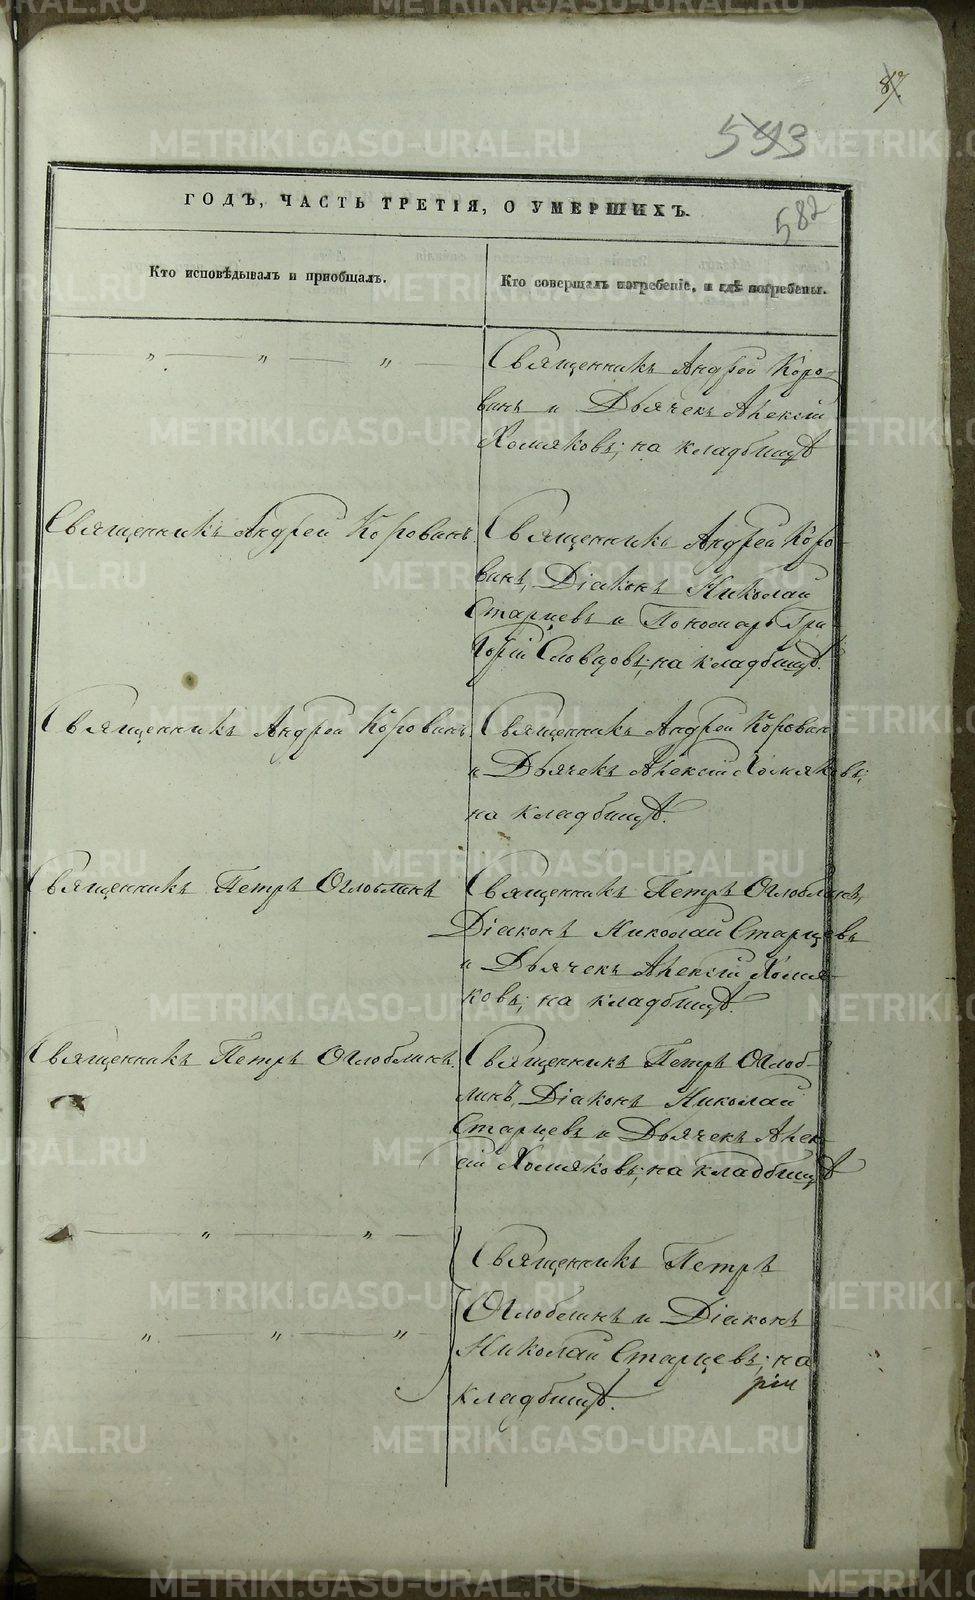 87.
593
582
ГОДЪ, ЧАСТЬ ТРЕТІЯ, О УМЕРШИХЪ.
Кто исповѣдывалъ и пріобщалъ.
Кто совершалъ погребеніе, и гдѣ погребены.
„ „ „
Священникъ Андрей Коро-
винъ и Дьячекъ Алексій
Хомяковъ; на кладбищѣ
Священникъ Андрей Коровинъ.
Священникъ Андрей Коро-
винъ, Діаконъ Николай
Старцевъ и Пономарь Гри
горій Словцовъ; на кладбищѣ.
Священникъ Андрей Коровинъ
Священникъ Андрей Коровин
и Дьячекъ Алексій Хомяковъ;
на кладбищѣ.
Священникъ Петръ Оглоблинъ
Священникъ Петръ Оглоблинъ,
Діаконъ Николай Старцевъ
и Дьячекъ Алексій Хомя-
ковъ; на кладбищѣ.
Священникъ Петръ Оглоблинъ.
Священникъ Петръ Оглоб-
линъ, Діаконъ Николай
Старцевъ и Дьячекъ Алек-
сій Хомяковъ; на кладбищѣ
„ „
Священникъ Петръ
Оглоблинъ и Діаконъ
„ „ „
Николай Старцевъ; на
кладбищѣ.
METRIKI.GASO-URAL.RU